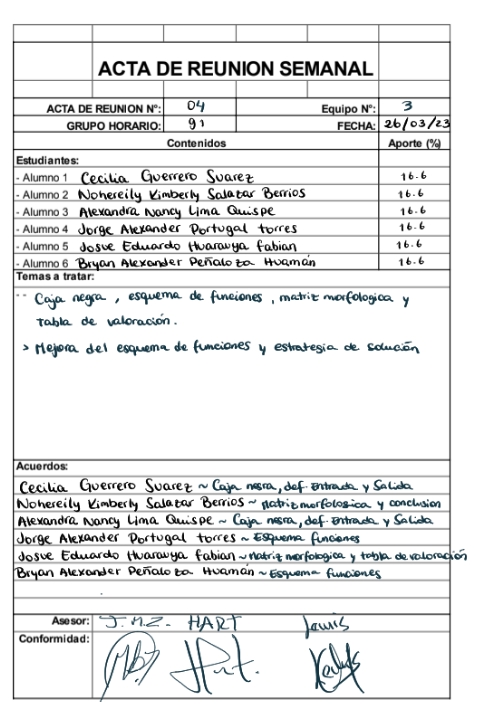 ACTA DE REUNION SEMANAL
ACTA DE REUNION Nº: 04 Equipo Nº: 3
GRUPO HORARIO: 91 FECHA: 26/03/23
Contenidos Aporte (%)
Estudiantes:
- Alumno 1 Cecilia Guerrero Suarez 16.6
- Alumno 2 Nohereily Kimberly Salazar Berrios 16.6
- Alumno 3 Alexandra Nancy Lima Quispe 16.6
- Alumno 4 Jorge Alexander Portugal torres 16.6
- Alumno 5 Josue Eduardo Huarauya fabian 16.6
- Alumno 6 Bryan Alexander Peñaloza Huamán 16.6
Temas a tratar:
-- Caja negra, esquema de funciones, matriz morfologica y
Tabla de valoración.
> Mejora del esquema de funciones y estrategia de solución
Acuerdos:
Cecilia Guerrero Suarez ~ Caja negra, def. Entrada y Salida
Nohereily Kimberly Salazar Berrios ~ Matriz morfologica y conclusion
Alexandra Nancy Lima Quispe ~ Caja negra, def. Entrada y Salida
Jorge Alexander Portugal torres ~ Esquema funciones
Josue Eduardo Huarauya fabian ~ Matriz morfologica y tabla de valoración
Bryan Alexander Peñaloza Huamán ~ Esquema funciones
Asesor: J.M.Z. - HART
Conformidad: